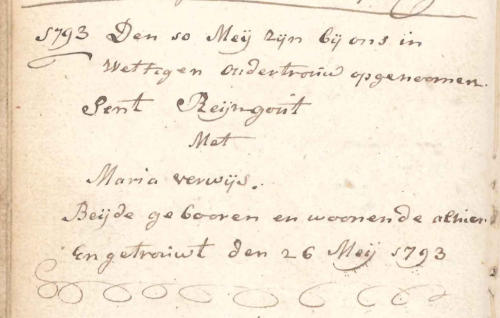 1793 Den 10 Meij zijn bij ons in
Wettigen ondertrouw opgenoomen.
Sent Reijngout
Met
Maria verwijs.
Beijde gebooren en woonende alhier
En getrouwt den 26 Meij 1793